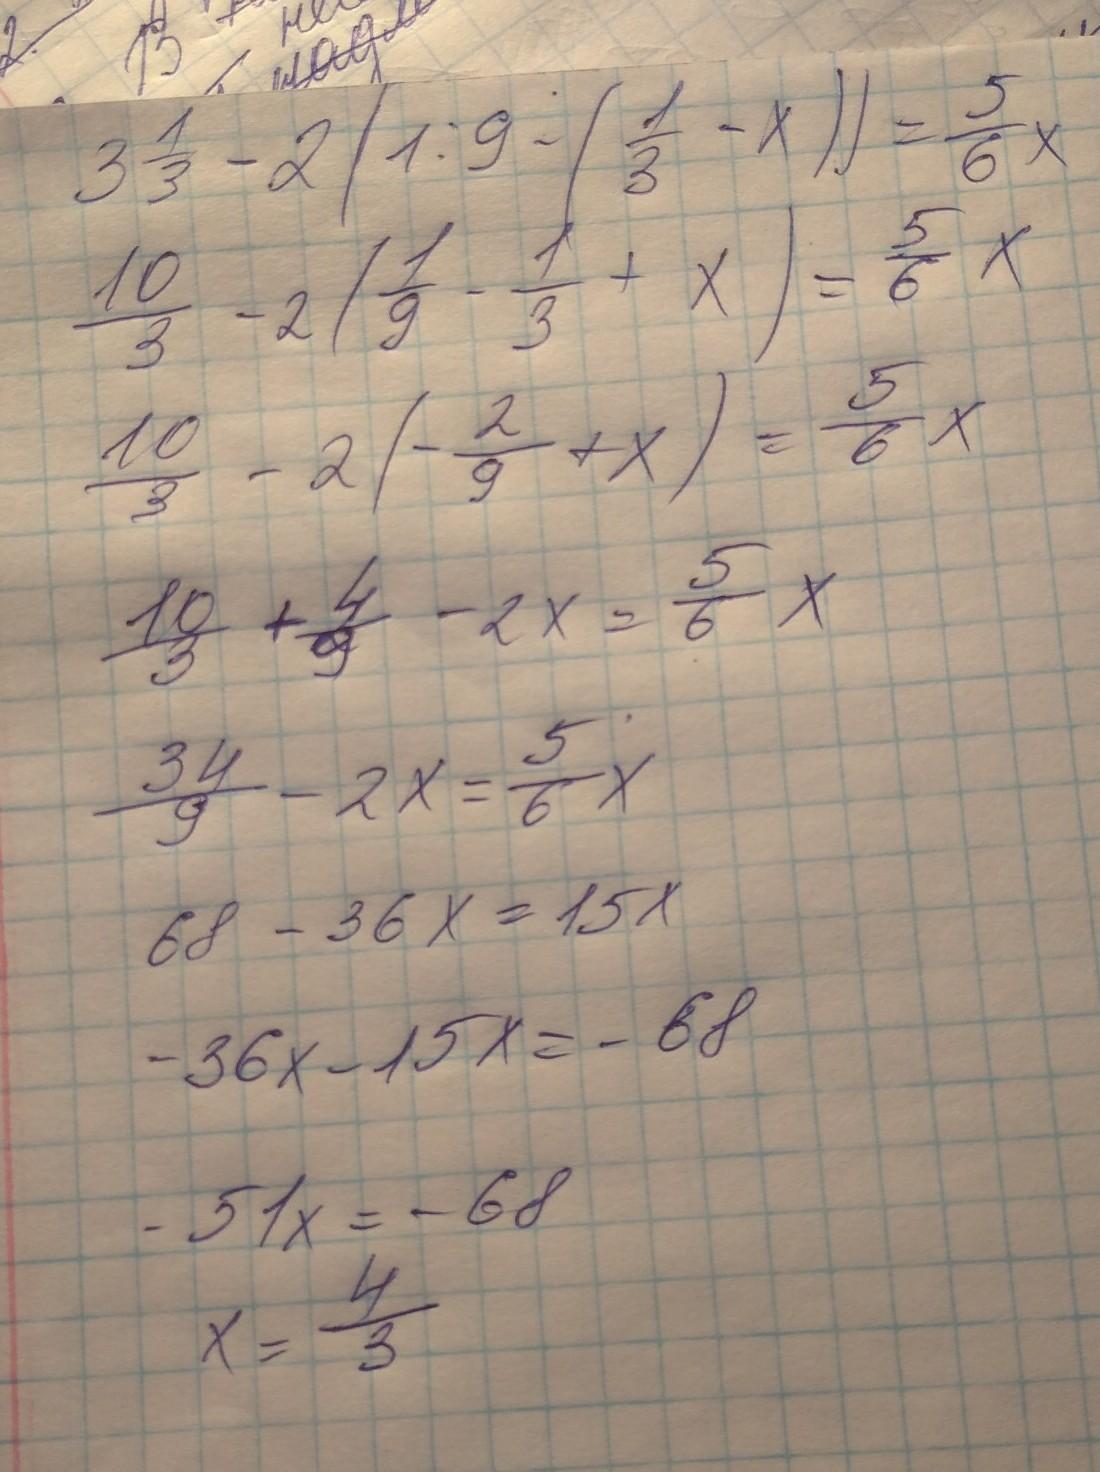 2. В
над
3 1/3 - 2(1:9 - (1/3 - x)) = 5/6 x
10/3 - 2(1/9 - 1/3 + x) = 5/6 x
10/3 - 2(-2/9 + x) = 5/6 x
10/3 + 4/9 - 2x = 5/6 x
34/9 - 2x = 5/6 x
68 - 36x = 15x
-36x - 15x = -68
-51x = -68
x = 4/3